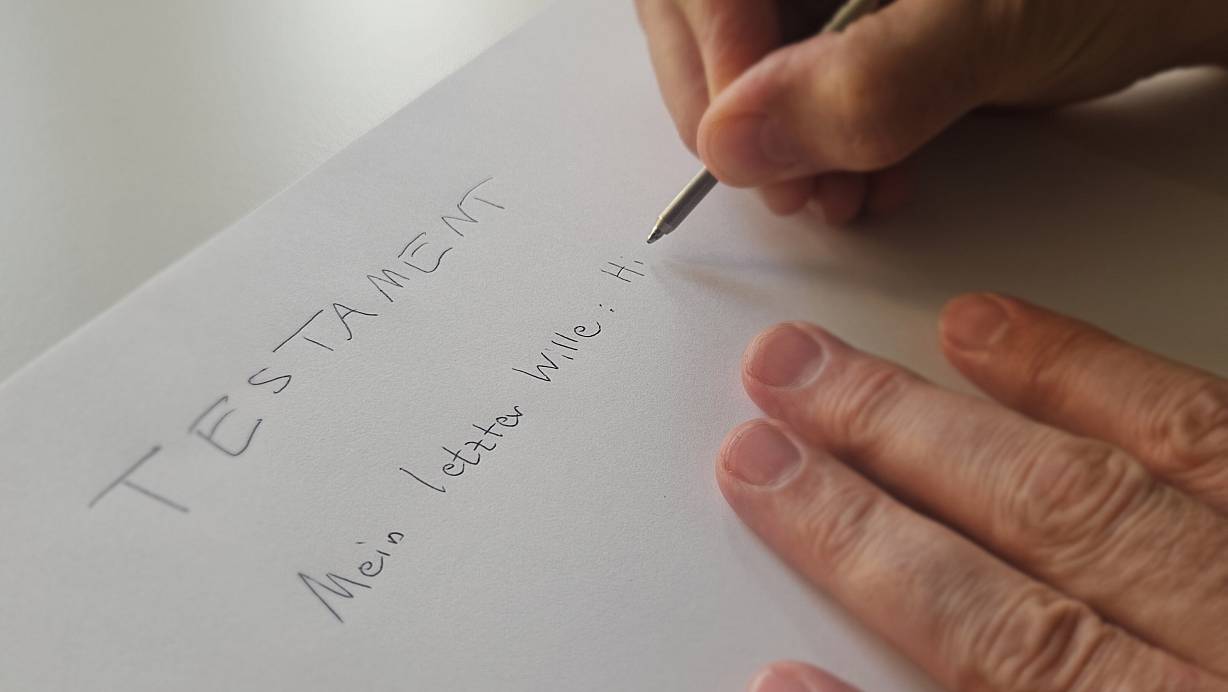 TESTAMENT
Mein letzter Wille: Hi